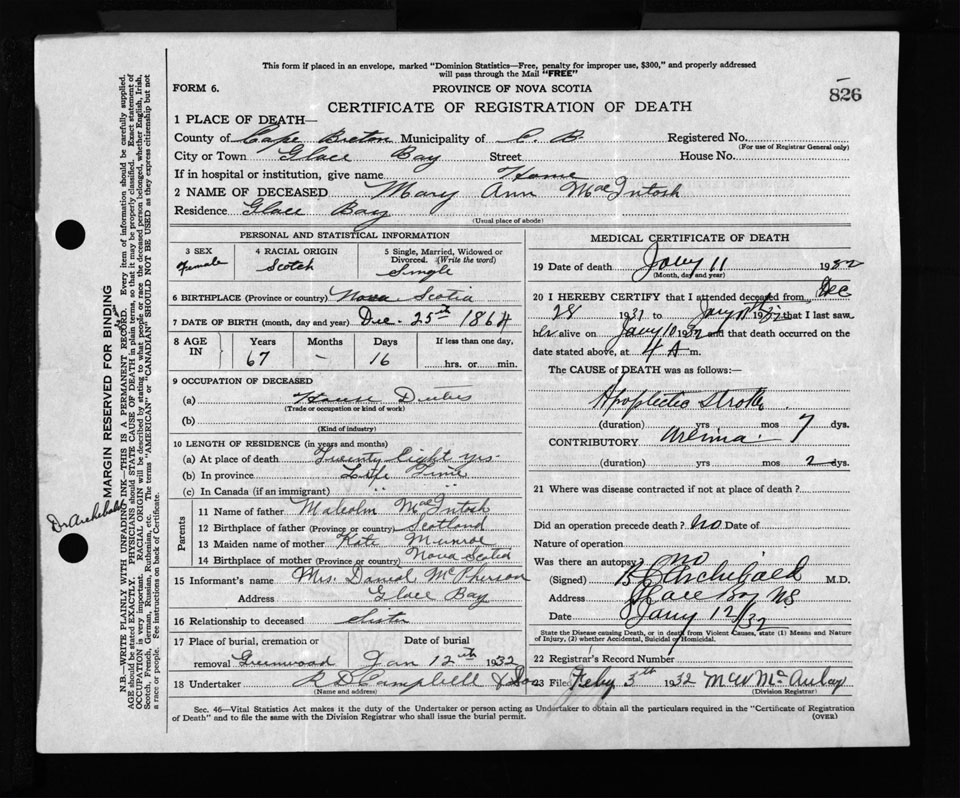 This form if placed in an envelope, marked "Dominion Statistics—Free, penalty for improper use, $300," and properly addressed
will pass through the Mail "FREE"
FORM 6.
PROVINCE OF NOVA SCOTIA
826
CERTIFICATE OF REGISTRATION OF DEATH
1 PLACE OF DEATH—
County of Cape Breton Municipality of C. B Registered No.
(For use of Registrar General only)
City or Town Glace Bay Street House No.
If in hospital or institution, give name Home
2 NAME OF DECEASED Mary Ann MacIntosh
Residence Glace Bay
(Usual place of abode)
PERSONAL AND STATISTICAL INFORMATION
3 SEX
Female
4 RACIAL ORIGIN
Scotch
5 Single, Married, Widowed or
Divorced. (Write the word)
Single
6 BIRTHPLACE (Province or country) Nova Scotia
7 DATE OF BIRTH (month, day and year) Dec. 25th 1864
8 AGE IN
Years Months Days If less than one day,
67 – 16 hrs. or min.
9 OCCUPATION OF DECEASED
(a) House Duties
(Trade or occupation or kind of work)
(b)
(Kind of industry)
10 LENGTH OF RESIDENCE (in years and months)
(a) At place of death Twenty Eight yrs.
(b) In province Life Time
(c) In Canada (if an immigrant) " "
Parents
11 Name of father Malcolm MacIntosh
12 Birthplace of father (Province or country) Scotland
13 Maiden name of mother Kate Munroe
14 Birthplace of mother (Province or country) Nova Scotia
15 Informant's name Mrs. Daniel McPherson
Address Glace Bay
16 Relationship to deceased Sister
17 Place of burial, cremation or
removal Greenwood
Date of burial
Jan 12th 1932
18 Undertaker R D Campbell & Son
(Name and address)
MEDICAL CERTIFICATE OF DEATH
19 Date of death Jany 11 1932
(Month, day and year)
20 I HEREBY CERTIFY that I attended deceased from Dec
28 1931 to Jany 1932 that I last saw
her alive on Jany 10 1932 and that death occurred on
date stated above, at 4 A m.
The CAUSE of DEATH was as follows:—
Apoplectic Stroke
(duration) yrs mos 7 dys.
CONTRIBUTORY Uremia
(duration) yrs mos 2 dys.
21 Where was disease contracted if not at place of death?
Did an operation precede death? No Date of
Nature of operation
Was there an autopsy? no
(Signed) Archibald M.D.
Address Glace Bay N.S
Date Jany 12/32
State the Disease causing Death, or in death from Violent Causes, state (1) Means and Nature
of Injury, (2) whether Accidental, Suicidal or Homicidal.
22 Registrar's Record Number
23 Filed Feby 3th 1932 McAulay
(Division Registrar)
Sec. 46—Vital Statistics Act makes it the duty of the Undertaker or person acting as Undertaker to obtain all the particulars required in the "Certificate of Registration
of Death" and to file the same with the Division Registrar who shall issue the burial permit.
(OVER)
MARGIN RESERVED FOR BINDING
Dr Archibald
N.B.—WRITE PLAINLY WITH UNFADING INK—THIS IS A PERMANENT RECORD. Every item of information should be carefully supplied.
AGE should be stated EXACTLY. PHYSICIANS should STATE CAUSE OF DEATH in plain terms, so that it may be properly classified. Exact statement of
OCCUPATION is very important. RACIAL ORIGIN will be described by stating to what people or race the deceased person belonged, whether English, Irish,
Scotch, French, German, Russian, Ruthenian, etc. The terms "AMERICAN" or "CANADIAN" SHOULD NOT BE USED as they express citizenship but not
a race or people. See instructions on back of Certificate.